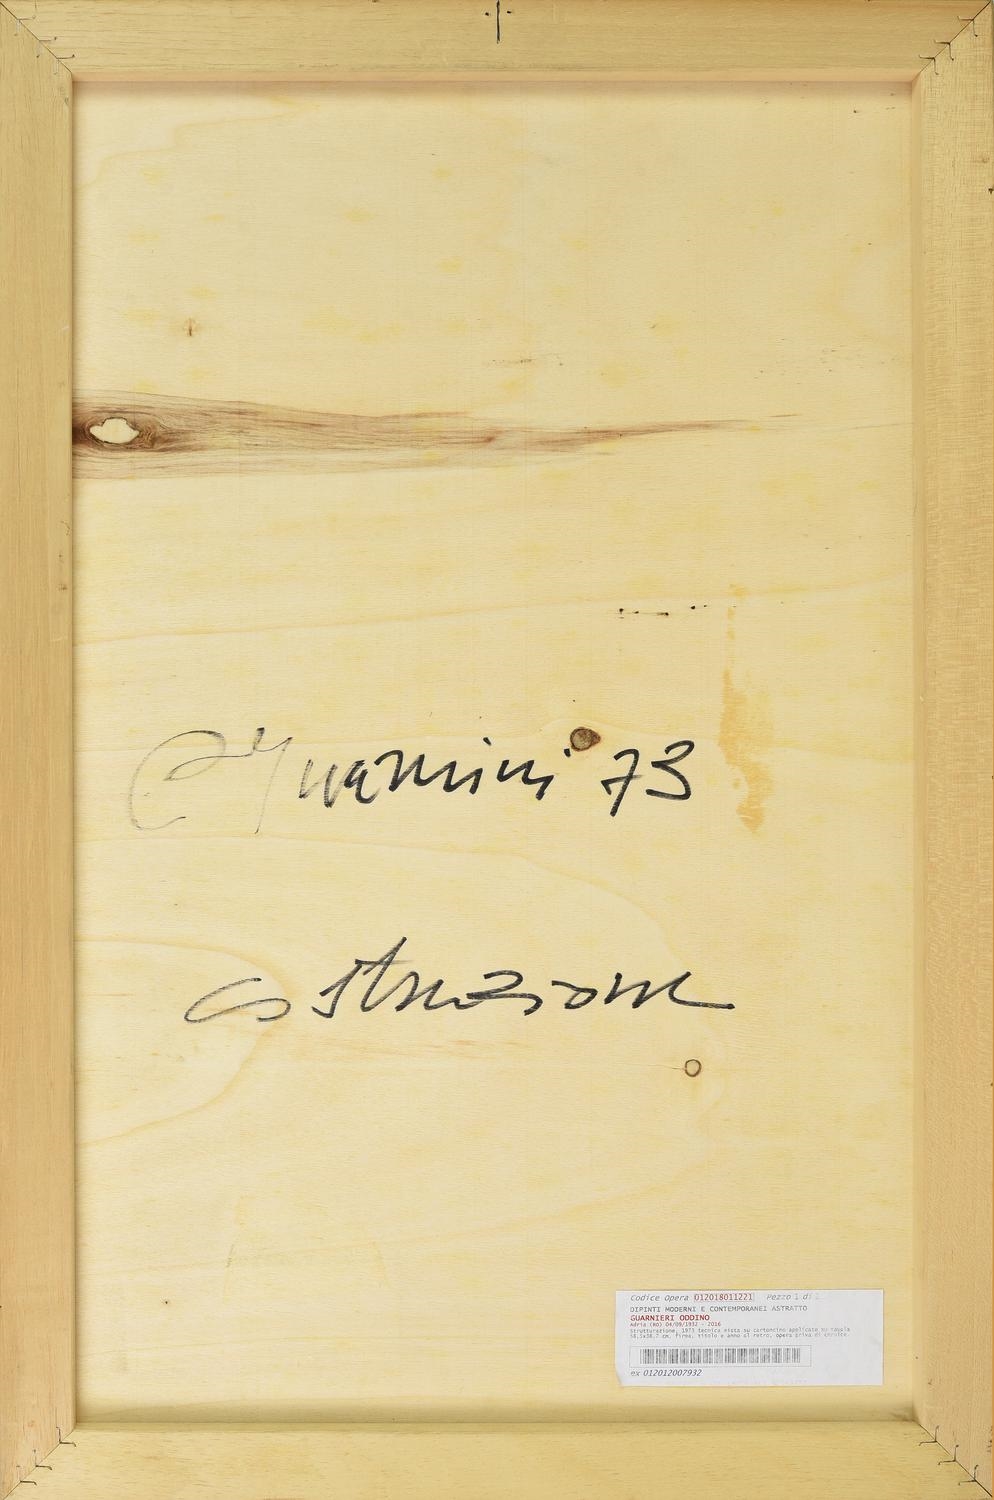 Guarnieri 73
costruzione
Codice Opera 012018011221 Pezzo 1 di
DIPINTI MODERNI E CONTEMPORANEI ASTRATTO
GUARNIERI ODDINO
Adria (RO) 04/09/1932 - 2016
Strutturazione, 1973 tecnica mista su cartoncino applicato su tavola
58,5x38,7 cm. Firma, titolo e anno al retro, opera priva di cornice.
ex 012012007932